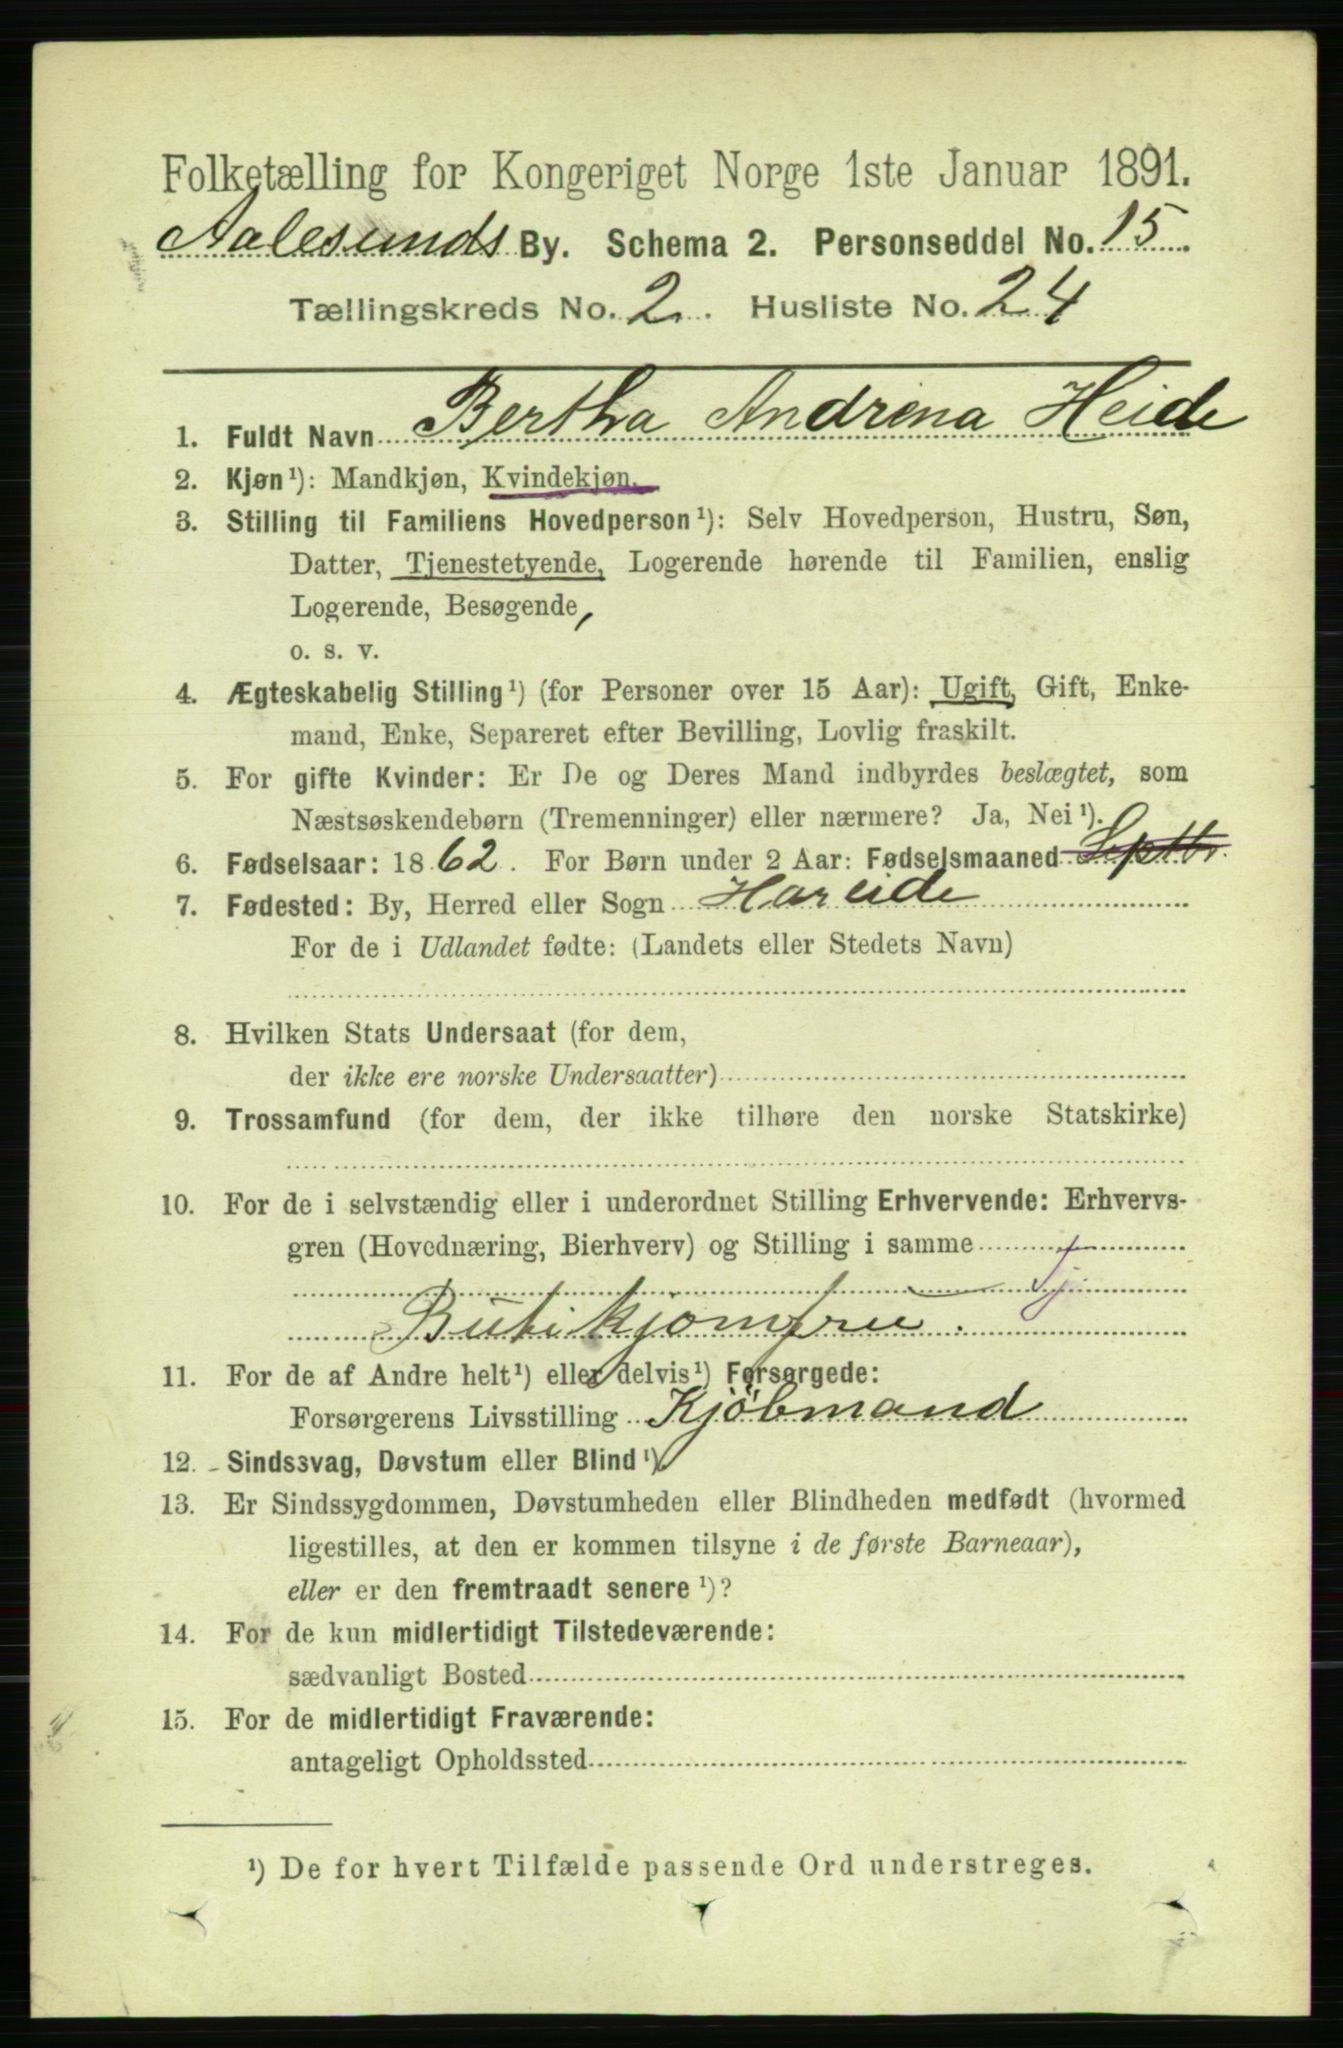 Folketælling for Kongeriget Norge 1ste Januar 1891.
Aalesunds By. Schema 2. Personseddel No. 15.
Tællingskreds No. 2. Husliste No. 24
1. Fuldt Navn Bertha Andrina Heide
2. Kjøn¹): Mandkjøn, Kvindekjøn.
3. Stilling til Familiens Hovedperson¹): Selv Hovedperson, Hustru, Søn,
Datter, Tjenestetyende, Logerende hørende til Familien, enslig
Logerende, Besøgende,
o. s. v.
4. Ægteskabelig Stilling¹) (for Personer over 15 Aar): Ugift, Gift, Enke-
mand, Enke, Separeret efter Bevilling, Lovlig fraskilt.
5. For gifte Kvinder: Er De og Deres Mand indbyrdes beslægtet, som
Næstsøskendebørn (Tremenninger) eller nærmere? Ja, Nei¹).
6. Fødselsaar: 1862. For Børn under 2 Aar: Fødselsmaaned Septbr.
7. Fødested: By, Herred eller Sogn Hareide
For de i Udlandet fødte: (Landets eller Stedets Navn)
8. Hvilken Stats Undersaat (for dem,
der ikke ere norske Undersaatter)
9. Trossamfund (for dem, der ikke tilhøre den norske Statskirke)
10. For de i selvstændig eller i underordnet Stilling Erhvervende: Erhvervs-
gren (Hovednæring, Bierhverv) og Stilling i samme
Butikjomfru. Tj
11. For de af Andre helt¹) eller delvis¹) Forsørgede:
Forsørgerens Livsstilling Kjøbmand
12. Sindssvag, Døvstum eller Blind¹)
13. Er Sindssygdommen, Døvstumheden eller Blindheden medfødt (hvormed
ligestilles, at den er kommen tilsyne i de første Barneaar),
eller er den fremtraadt senere¹)?
14. For de kun midlertidigt Tilstedeværende:
sædvanligt Bosted
15. For de midlertidigt Fraværende:
antageligt Opholdssted
¹) De for hvert Tilfælde passende Ord understreges.